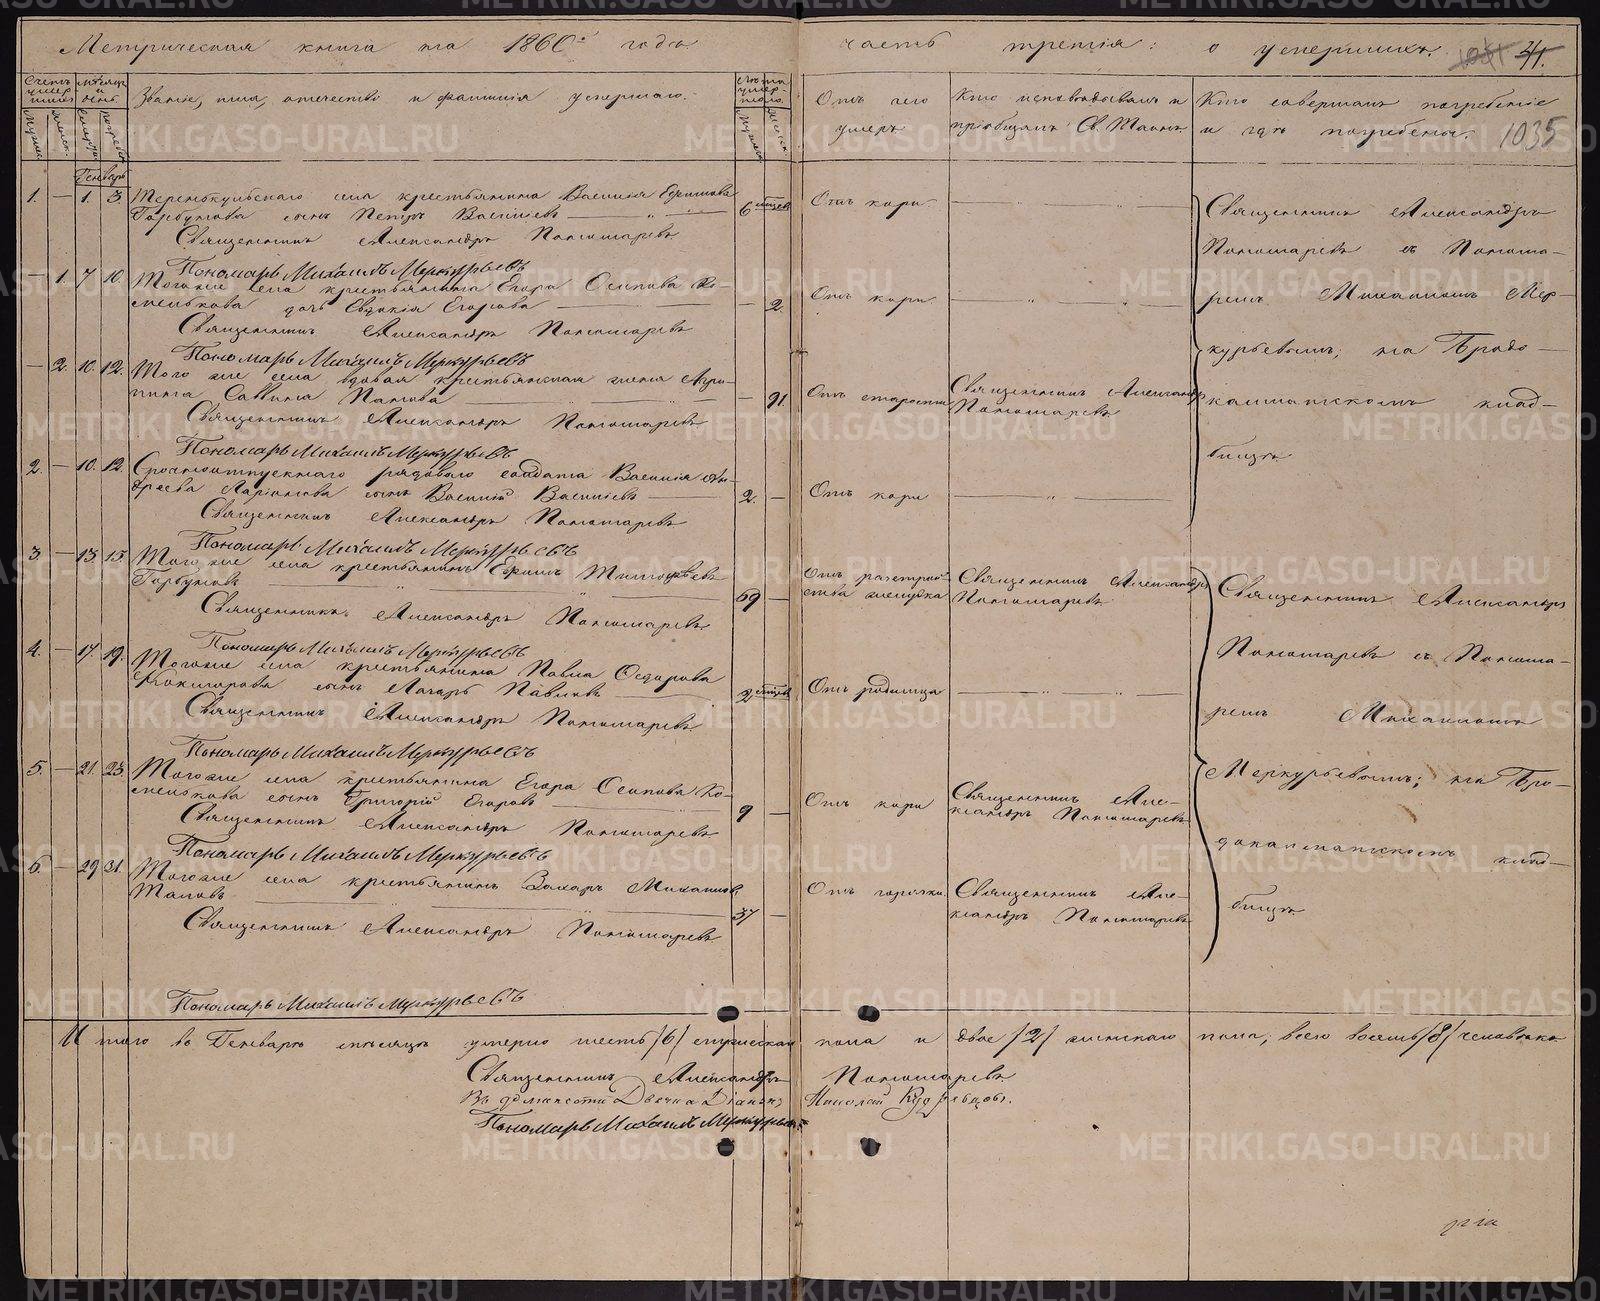 Метрическая книга на 1860й годъ
часть третія: о умершихъ.
41.
1035
Счетъ умершихъ
Мѣсяцъ и день
Званіе, имя, отчество и фамилія умершаго.
Лѣта умершаго
Отъ чего умеръ
Кто исповѣдывалъ и пріобщалъ Св. Таинъ
Кто совершалъ погребеніе и гдѣ погребены.
Генварь
1. — 1. 3. Теренкульскаго села крестьянина Василія Ефимова
Горбунова сынъ Петръ Васильевъ 6 мѣсяцев Отъ кори.
Священникъ Александръ Пономаревъ
Пономарь Михаилъ Меркурьевъ
— 1. 7 10. Тогоже села крестьянина Егора Осипова Ко-
мелькова дочь Евдокія Егорова — 2. Отъ кори
Священникъ Александръ Пономаревъ
Пономарь Михаилъ Меркурьевъ
— 2. 10. 12. Того же села вдовая крестьянская жена Агри-
пина Савина Панова — 91. Отъ старости Священникъ Александръ Пономаревъ
Священникъ Александръ Пономаревъ
Пономарь Михаилъ Меркурьевъ
2. — 10. 12. Срочноотпускнаго рядоваго солдата Василія Ан-
дреева Ларіонова сынъ Василій Васильевъ 2. — Отъ кори
Священникъ Александръ Пономаревъ
Пономарь Михаилъ Меркурьевъ
3. — 13. 15. Того же села крестьянинъ Ефимъ Тимофѣевъ
Горбуновъ 69 — Отъ разстрой-
ства желудка Священникъ Александръ Пономаревъ
Священникъ Александръ Пономаревъ
Пономарь Михаилъ Меркурьевъ
4. — 17. 19. Тогоже села крестьянина Павла Федорова
сынъ Лазарь Павловъ 2 мѣсяцев Отъ родимца
Священникъ Александръ Пономаревъ
Пономарь Михаилъ Меркурьевъ
5. — 21. 23. Тогоже села крестьянина Егора Осипова Ко-
мелькова сынъ Григорій Егоровъ 9 — Отъ кори Священникъ Але-
ксандръ Пономаревъ
Священникъ Александръ Пономаревъ
Пономарь Михаилъ Меркурьевъ
6. — 29 31. Тогоже села крестьянинъ Захаръ Михаиловъ
37 — Отъ горячки. Священникъ Але-
ксандръ Пономаревъ
Священникъ Александръ Пономаревъ
Пономарь Михаилъ Меркурьевъ
Священникъ Александръ
Пономаревъ съ Понома-
ремъ Михаиломъ Мер-
курьевымъ; на Бродо-
калмакскомъ клад-
бищѣ.
Священникъ Александръ
Пономаревъ съ Понома-
ремъ Михаиломъ
Меркурьевымъ; на Бро-
докалмакскомъ клад-
бищѣ.
Итого въ Генварѣ мѣсяцѣ умерло шесть /6/ мужескаго пола и двое /2/ женскаго пола; всего восемь /8/ человѣкъ.
Священникъ Александръ Пономаревъ
Въ должности Дьячка Діаконъ Николай
Пономарь Михаилъ Меркурьевъ
METRIKI.GASO-URAL.RU